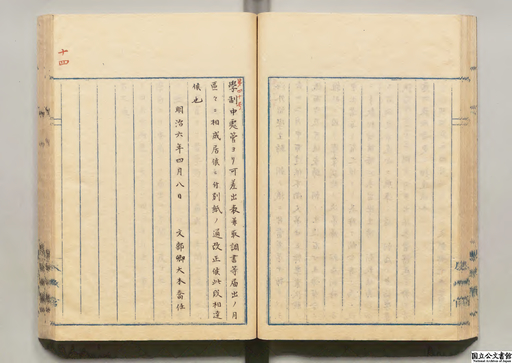 十四
第四十九号
學制中處管ヨリ可差出表並取調書等届出ノ月
區々ニ相成居候ニ付別紙ノ通改正候此段相達
候也
明治六年四月八日
文部卿大木喬任
国立公文書館
National Archives of Japan